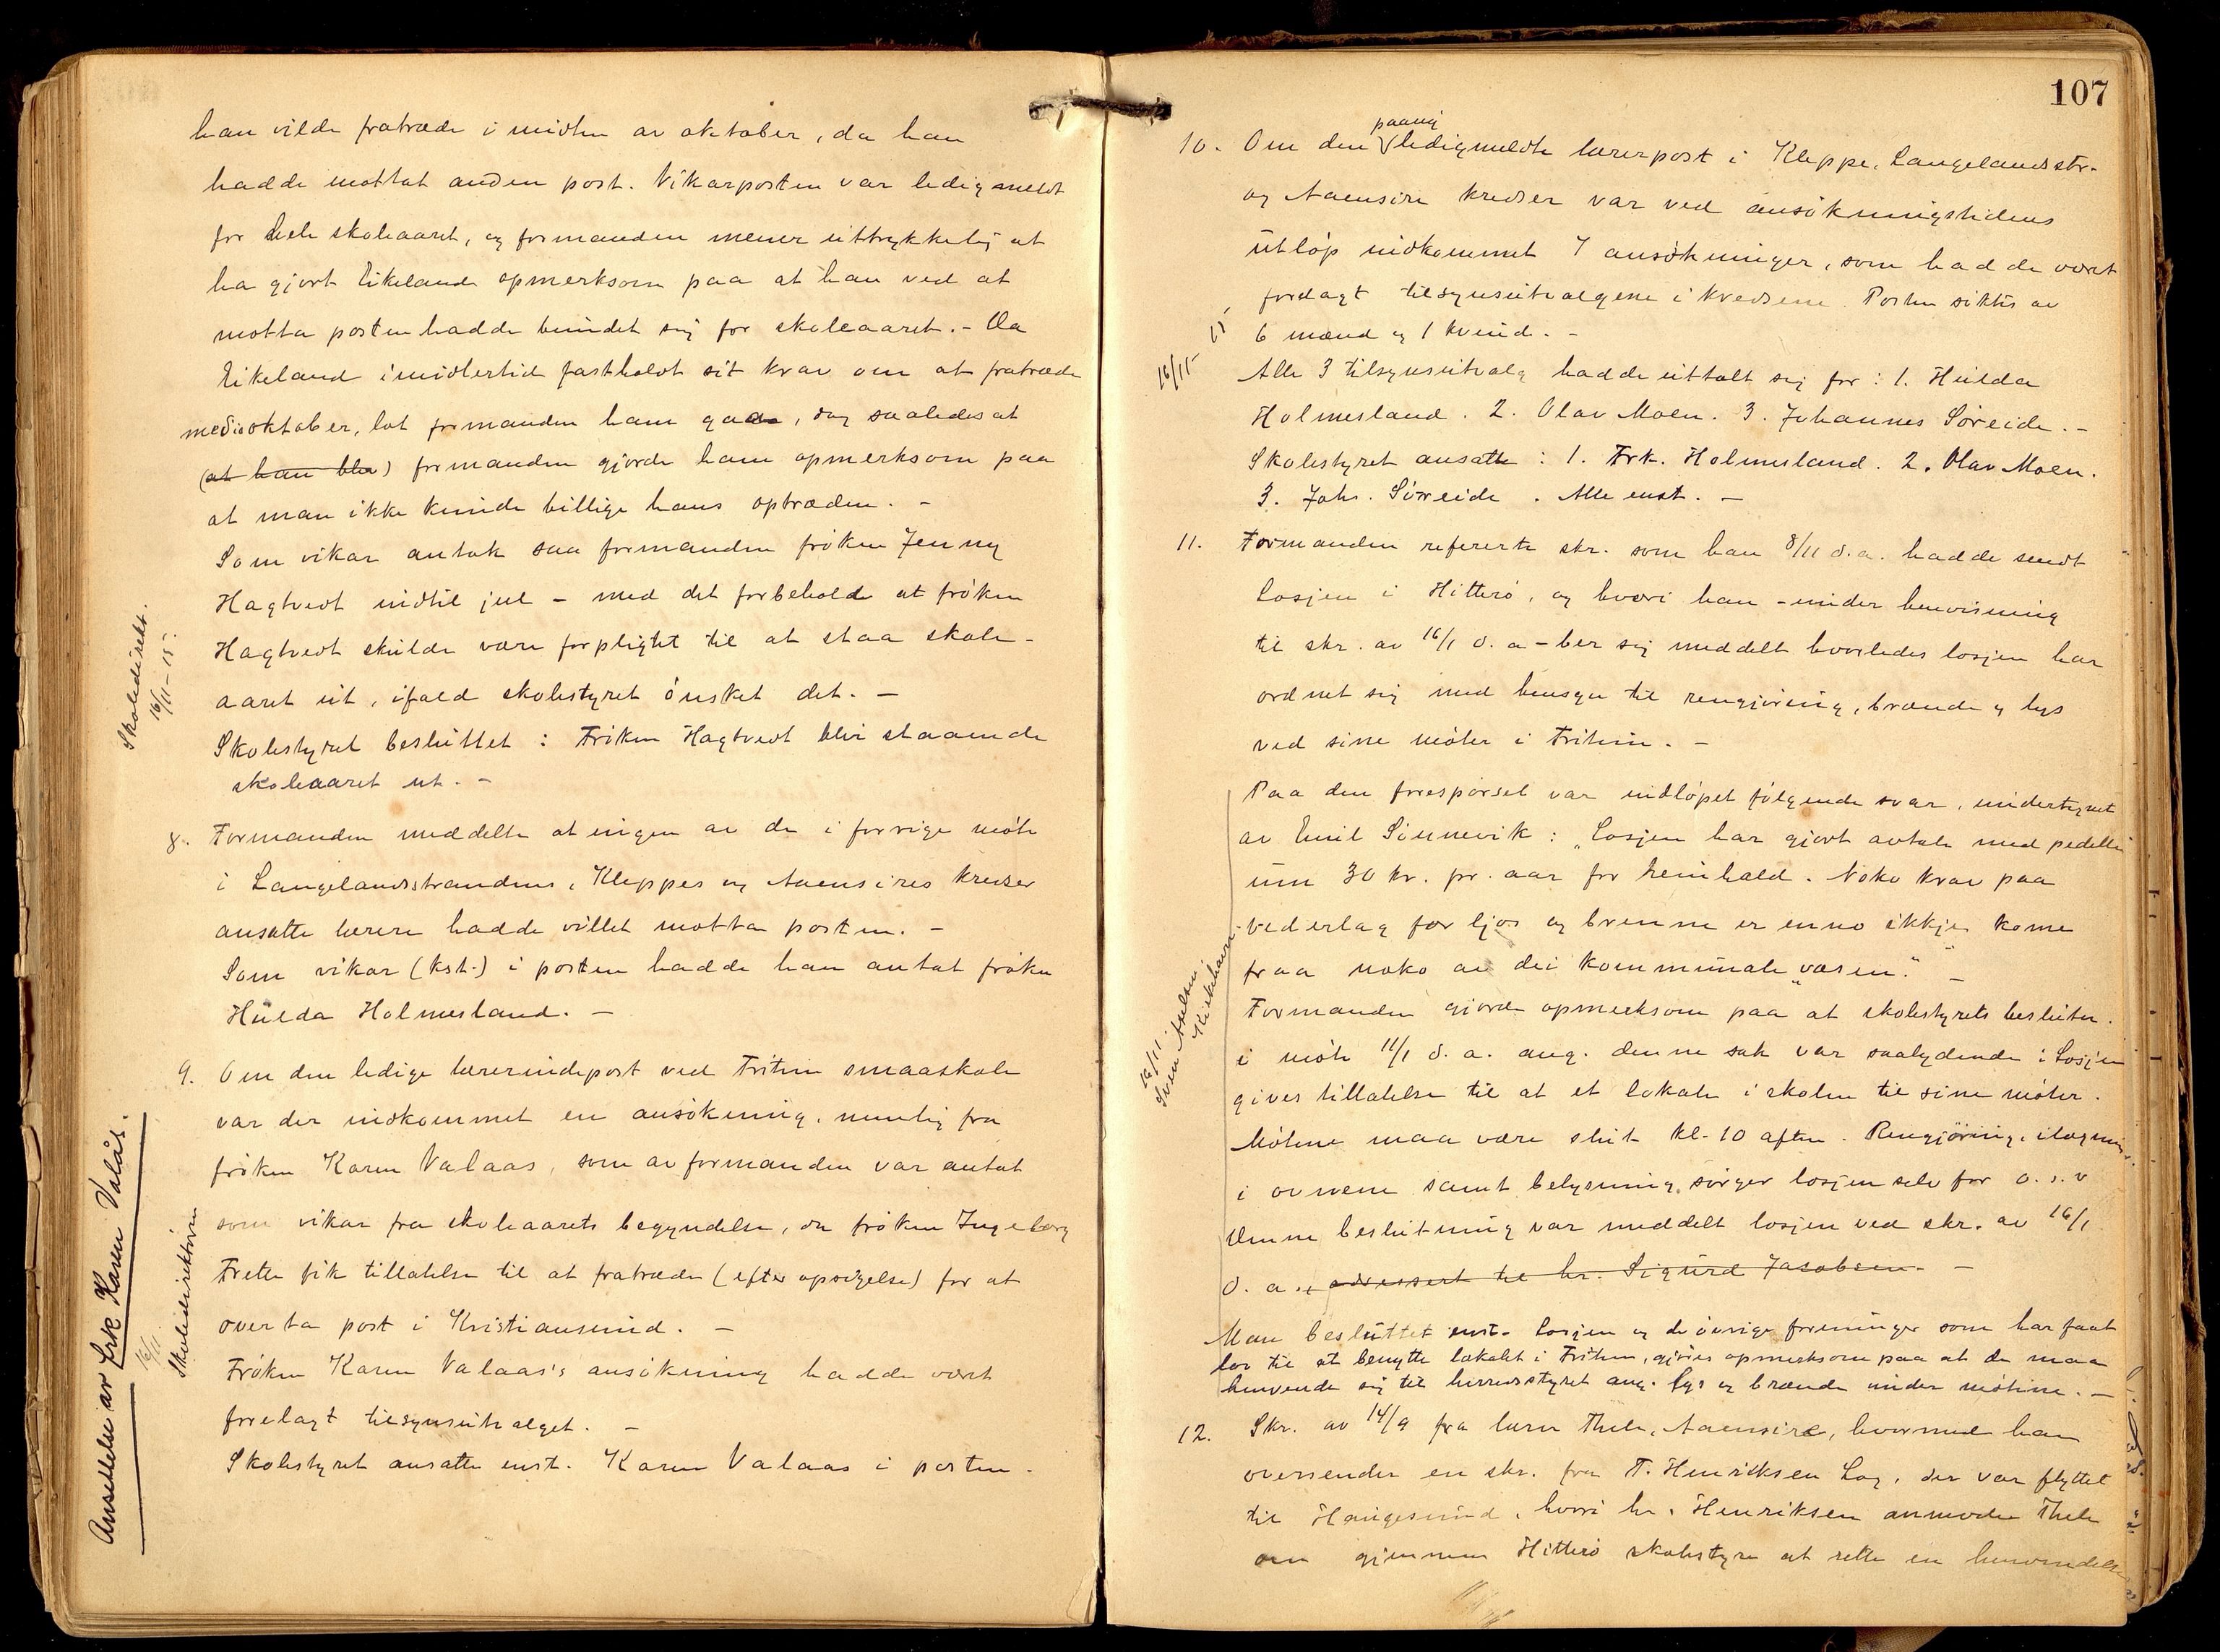 han vilde fratræde i midten av oktober, da han
hadde mottat anden post. Vikarposten var ledigmeldt
for hele skoleaaret, og formanden mener uttrykkelig at
ha gjort Eikeland opmerksom paa at han ved at
motta posten hadde bundet sig for skoleaaret. - Da
Eikeland imidlertid fastholdt sit krav om at fratræde
medio oktober, lot formanden ham gaa, dog saaledes at
(at han blev) formanden gjorde ham opmerksom paa
at man ikke kunde billige hans optræden. -
Som vikar antok saa formanden frøken Jenny
Hagtvedt indtil jul - med det forbehold at frøken
Hagtvedt skulde være forpligtet til at staa skole-
aaret ut, ifald skolestyret ønsket det. -
Skolestyret besluttet: Frøken Hagtvedt blir staaende
skoleaaret ut. -
Skoledirekt.
16/11-15.
8. Formanden meddelte at ingen av de i forrige møte
i Langelandsstrandens, Kleppes og Aaensires kredser
ansatte lærere hadde villet motta posten. -
Som vikar (kst.) i posten hadde han antat frøken
Hulda Holmesland. -
9. Om den ledige lærerindepost ved Fritun smaaskole
var der indkommet en ansøkning, nemlig fra
frøken Karen Valaas, som av formanden var antat
som vikar fra skoleaarets begyndelse, da frøken Ingeborg
Frette fik tillatelse til at fratræde (efter opsigelse) for at
overta post i Kristiansund. -
Frøken Karen Valaas's ansøkning hadde været
forelagt tilsynsutvalget. -
Skolestyret ansatte enst. Karen Valaas i posten.
Ansettelse av frk Karen Valås.
16/11.
Skoledirektøren
107
10. Om den paany ledigmeldte lærerpost i Kleppe, Langelandsstr.
og Aaensire kredser var ved ansøkningstidens
utløp indkommet 7 ansøkninger, som hadde været
forelagt tilsynsutvalgene i kredsene. Posten søktes av
6 mænd og 1 kvind. -
16/11-15
Alle 3 tilsynsutvalg hadde uttalt sig for: 1. Hulda
Holmesland. 2. Olav Moen. 3. Johannes Søreide. -
Skolestyret ansatte: 1. Frk. Holmesland. 2. Olav Moen.
3. Johs. Søreide. Alle enst. -
11. Formanden refererte skr. som han 8/11 d.a. hadde sendt
losjen i Hitterø, og hvori han - under henvisning
til skr. av 16/1 d.a - ber sig meddelt hvorledes losjen har
ordnet sig med hensyn til rengjøring, brænde og lys
ved sine møter i Fritun. -
Paa den forespørsel var indløpet følgende svar, undertegnet
av Emil Sinnevik: „Losjen har gjort avtale med pedellen
um 30 kr. pr. aar for reinhald. Noko krav paa
vederlag for ljos og brenne er enno ikkje kome
fraa noko av dei kommunale „væsen." -
Formanden gjorde opmerksom paa at skolestyrets beslutn.
i møte 11/1 d.a. ang. denne sak var saalydende: Losjen
gives tillatelse til at et lokale i skolen til sine møter.
Møtene maa være slut kl. 10 aften. Rengjøring, ilægning
i ovnene samt belysning sørger losjen selv for o.s.v
Denne beslutning var meddelt losjen ved skr. av 16/1
d.a., adressert til hr. Sigurd Jacobsen. -
Man besluttet enst. Losjen og de øvrige foreninger som har faat
lov til at benytte lokalet i Fritun, gjøres opmerksom paa at de maa
henvende sig til herredsstyret ang. lys og brænde under møtene. -
16/11
Kirkehavn
12. Skr. av 14/9 fra lærer Thele, Aaensire, hvormed han
oversender en skr. fra T. Henriksen Log, der var flyttet
til Haugesund, hvori hr. Henriksen anmoder Thele
om gjennem Hitterø skolestyre at rette en henvendelse